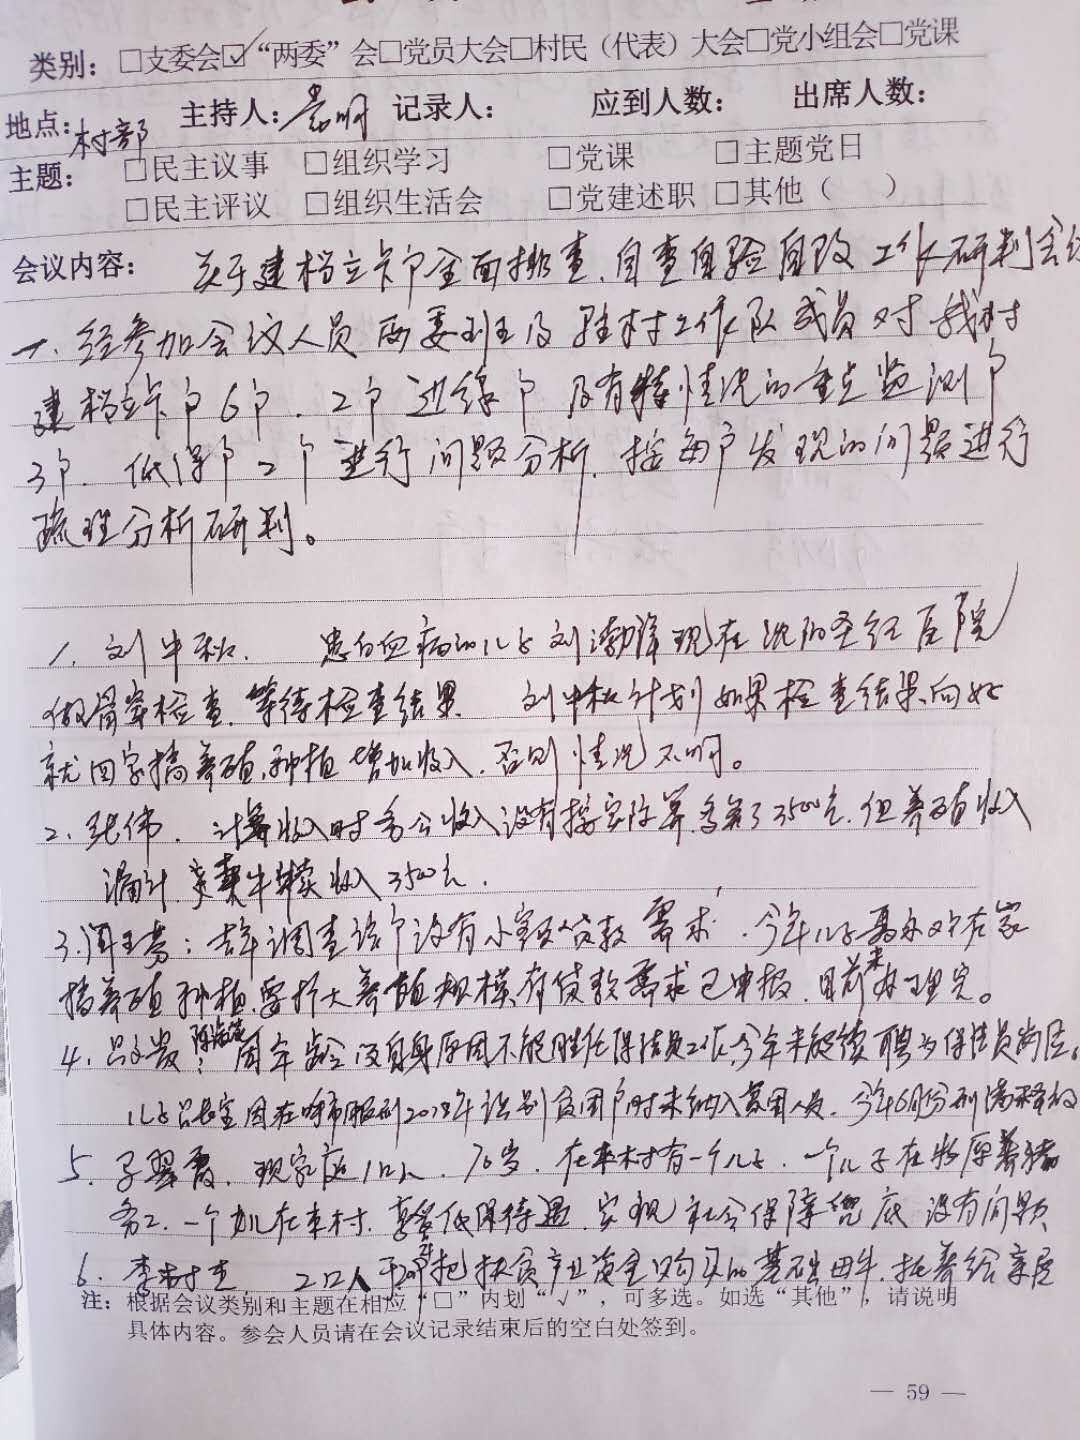 类别：□支委会☑“两委”会□党员大会□村民（代表）大会□党小组会□党课
地点：村部 主持人： 记录人： 应到人数： 出席人数：
主题： □民主议事 □组织学习 □党课 □主题党日
□民主评议 □组织生活会 □党建述职 □其他（ ）
会议内容： 关于建档立卡户全面排查、自查自验自改工作研判会议
一、经参加会议人员两委班及驻村工作队成员对我村
建档立卡户6户、2户边缘户及有特情况的重点监测户
3户、低保户2户进行问题分析，按每户发现的问题进行
梳理分析研判。
1、刘中秋、 患白血病的儿子刘渤洋现在沈阳圣经医院
做骨穿检查，等待检查结果 刘中秋计划如果检查结果向好
就回家搞养殖、种植增加收入，否则情况不明。
2、张伟、 计算收入时务工收入没有按实际算，多算了3500元，但养殖收入
漏计 卖 牛 收入3500元。
3、 ：去年调查该户没有小额贷款需求，今年儿子 在家
搞养殖种植，要扩大养殖规模，有贷款需求已申报，目前未办理完。
4、吕 ： 因年龄及自身原因不能胜任保洁员工作，今年未能续聘为保洁员岗位。
儿子吕 因在 服刑2018年识别贫困户时未纳入贫困人员，今年6月份刑满释放
5、 翠霞、现家庭1口人、76岁、在本村有一个儿子、一个儿子在 养猪
务工、一个女儿在本村，享受低保待遇，实现社会保障兜底 没有问题
6、李树 、 2口人 把扶贫产业资金购买的基础母牛，托养给亲属
注：根据会议类别和主题在相应“□”内划“√”，可多选。如选“其他”，请说明
具体内容。参会人员请在会议记录结束后的空白处签到。
— 59 —